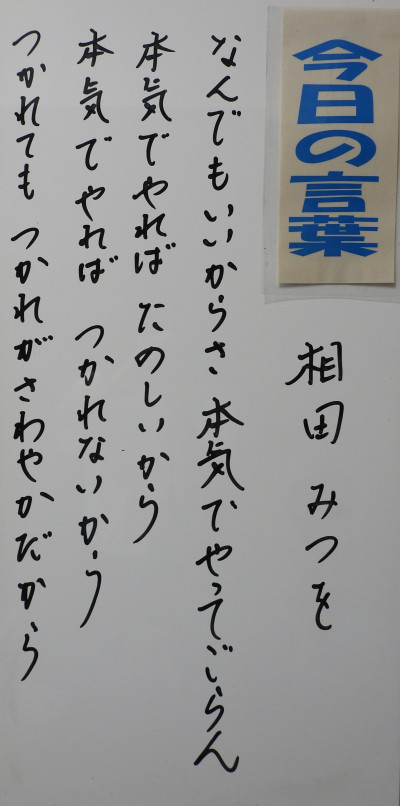 今日の言葉
相田 みつを
なんでもいいからさ 本気でやってごらん
本気でやれば たのしいから
本気でやれば つかれないから
つかれても つかれがさわやかだから